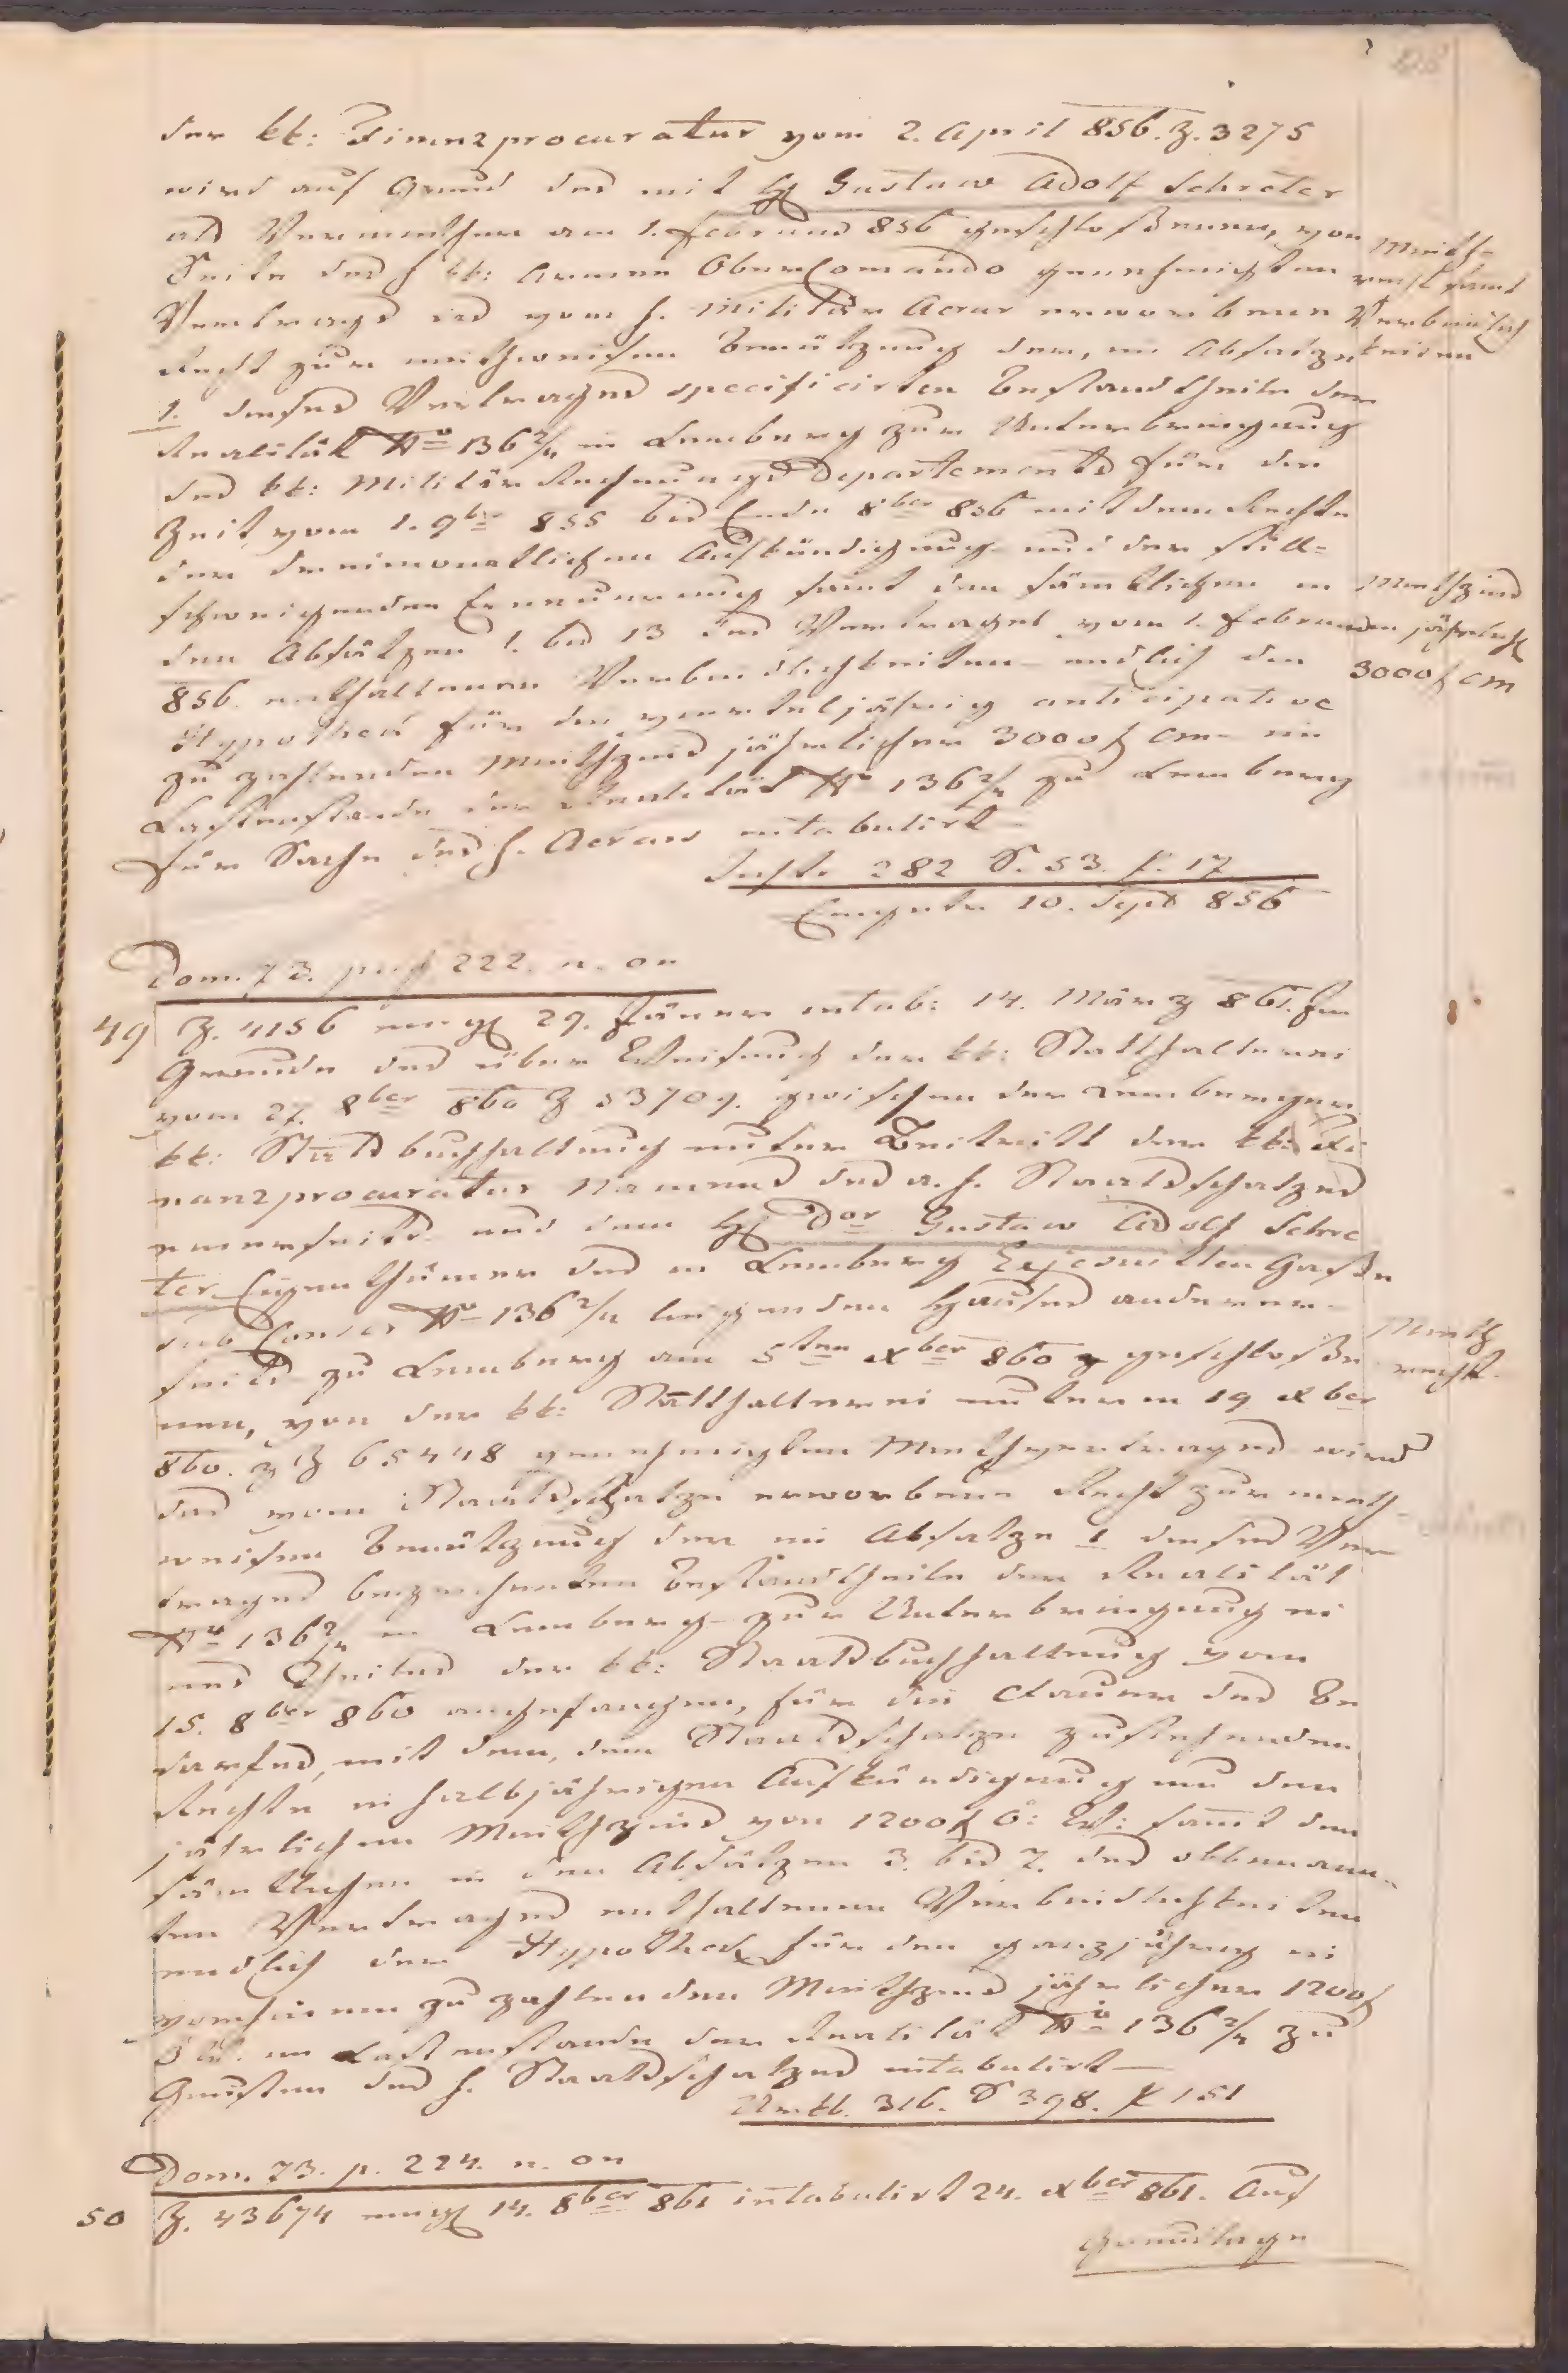 der kk: Finanzprocuratur vom 2. April 856. Z. 3275
wird auf Grund des mit H Gustaw Adolf Schreter
als Vermiether am 1. Februar 856 geschloßenen, von
Seite des h kk: Armee OberComando genehmigten
Vertrags das vom h. Militär Aerar erworbene
Recht zur miethweisen Benützung der, im Absatze
1. dieses Vertrages specificirten Bestandtheile der
Realität No 136 2/4 in Lemberg zur Unterbringung
des kk: Militär Rechnungs Departements für die
Zeit vom 1. 9ber 855 bis Ende 8ber 856 mit dem Rechte
der dreimonatlichen Aufkündigung und der still-
schweigenden Erneuerung samt den sämtlichen in
den Absätzen 1. bis 13 des Vertrages vom 1. Februar
856 enthaltenen Verbindlichkeiten endlich die
Hypothek für den vierteljährig anticipative
zu zahlenden Miethzins jährlicher 3000 f CM im
Lastenstande der Realität No 136 2/4 zu Lemberg
für Sache des h. Aerars intabulirt
Instr. 282 S. 53. P. 17
Eingetr. 10. Sept 856
Mieth-
recht samt
Verbindlich
keiten
Miethzins
jährlich
3000 f CM
Dom. 73. pag 222. n. on
49 Z. 4156 eing 29. Jäner intab: 14. März 861. Im
Grunde des über Weisung der kk: Statthalterei
vom 27. 8ber 860 Z 53709. zwischen der Lemberger
kk: Staatsbuchhaltung unter Beitritt der kk: Fi
nanzprocuratur Namens des a. h. Staatsschatzes
einerseits und dem H Dor Gustaw Adolf Schre
ter Eigenthümer des in Lemberg Exjesuitten Gaße
sub Conscr No 136 2/4 liegenden Hauses anderer-
seits zu Lemberg am 5ten Xber 860 geschloße
nen, von der kk: Statthalterei unterm 19 Xber
860. Z 65448 genehmigten Miethvertrages wird
das vom Staatsschatze erworbene Recht zur mieth
weisen Benützung der im Absatze 1 dieses Ver
trages bezeichneten Bestandtheile der Realität
No 136 2/4 in Lemberg zur Unterbringung ei
nes Theiles der kk: Staatsbuchhaltung vom
15. 8ber 860 angefangen, für die Dauer des Be
darfes, mit dem, dem Staatsschatze zustehenden
Rechte in halbjähriger Aufkündigung um den
jährlichen Miethzins von 1200 f Ö: W: samt den
sämtlichen in den Absätzen 3. bis 7. des obbenann-
ten Vertrages enthaltenen Verbindlichkeiten
endlich der Hypothek für den ganzjährig im
vorhinein zu zahlenden Miethzins jährlicher 1200 f
Ö W. im Lastenstande der Realität No 136 2/4 zu
Gunsten des h. Staatsschatzes intabulirt
Urkb. 316. S 398. P 151
Mieth
recht.
Dom. 73. p. 224. n. on
50 Z. 43674 eing 14. 8ber 861 intabulirt 24. Xber 861. Auf
Grundlage